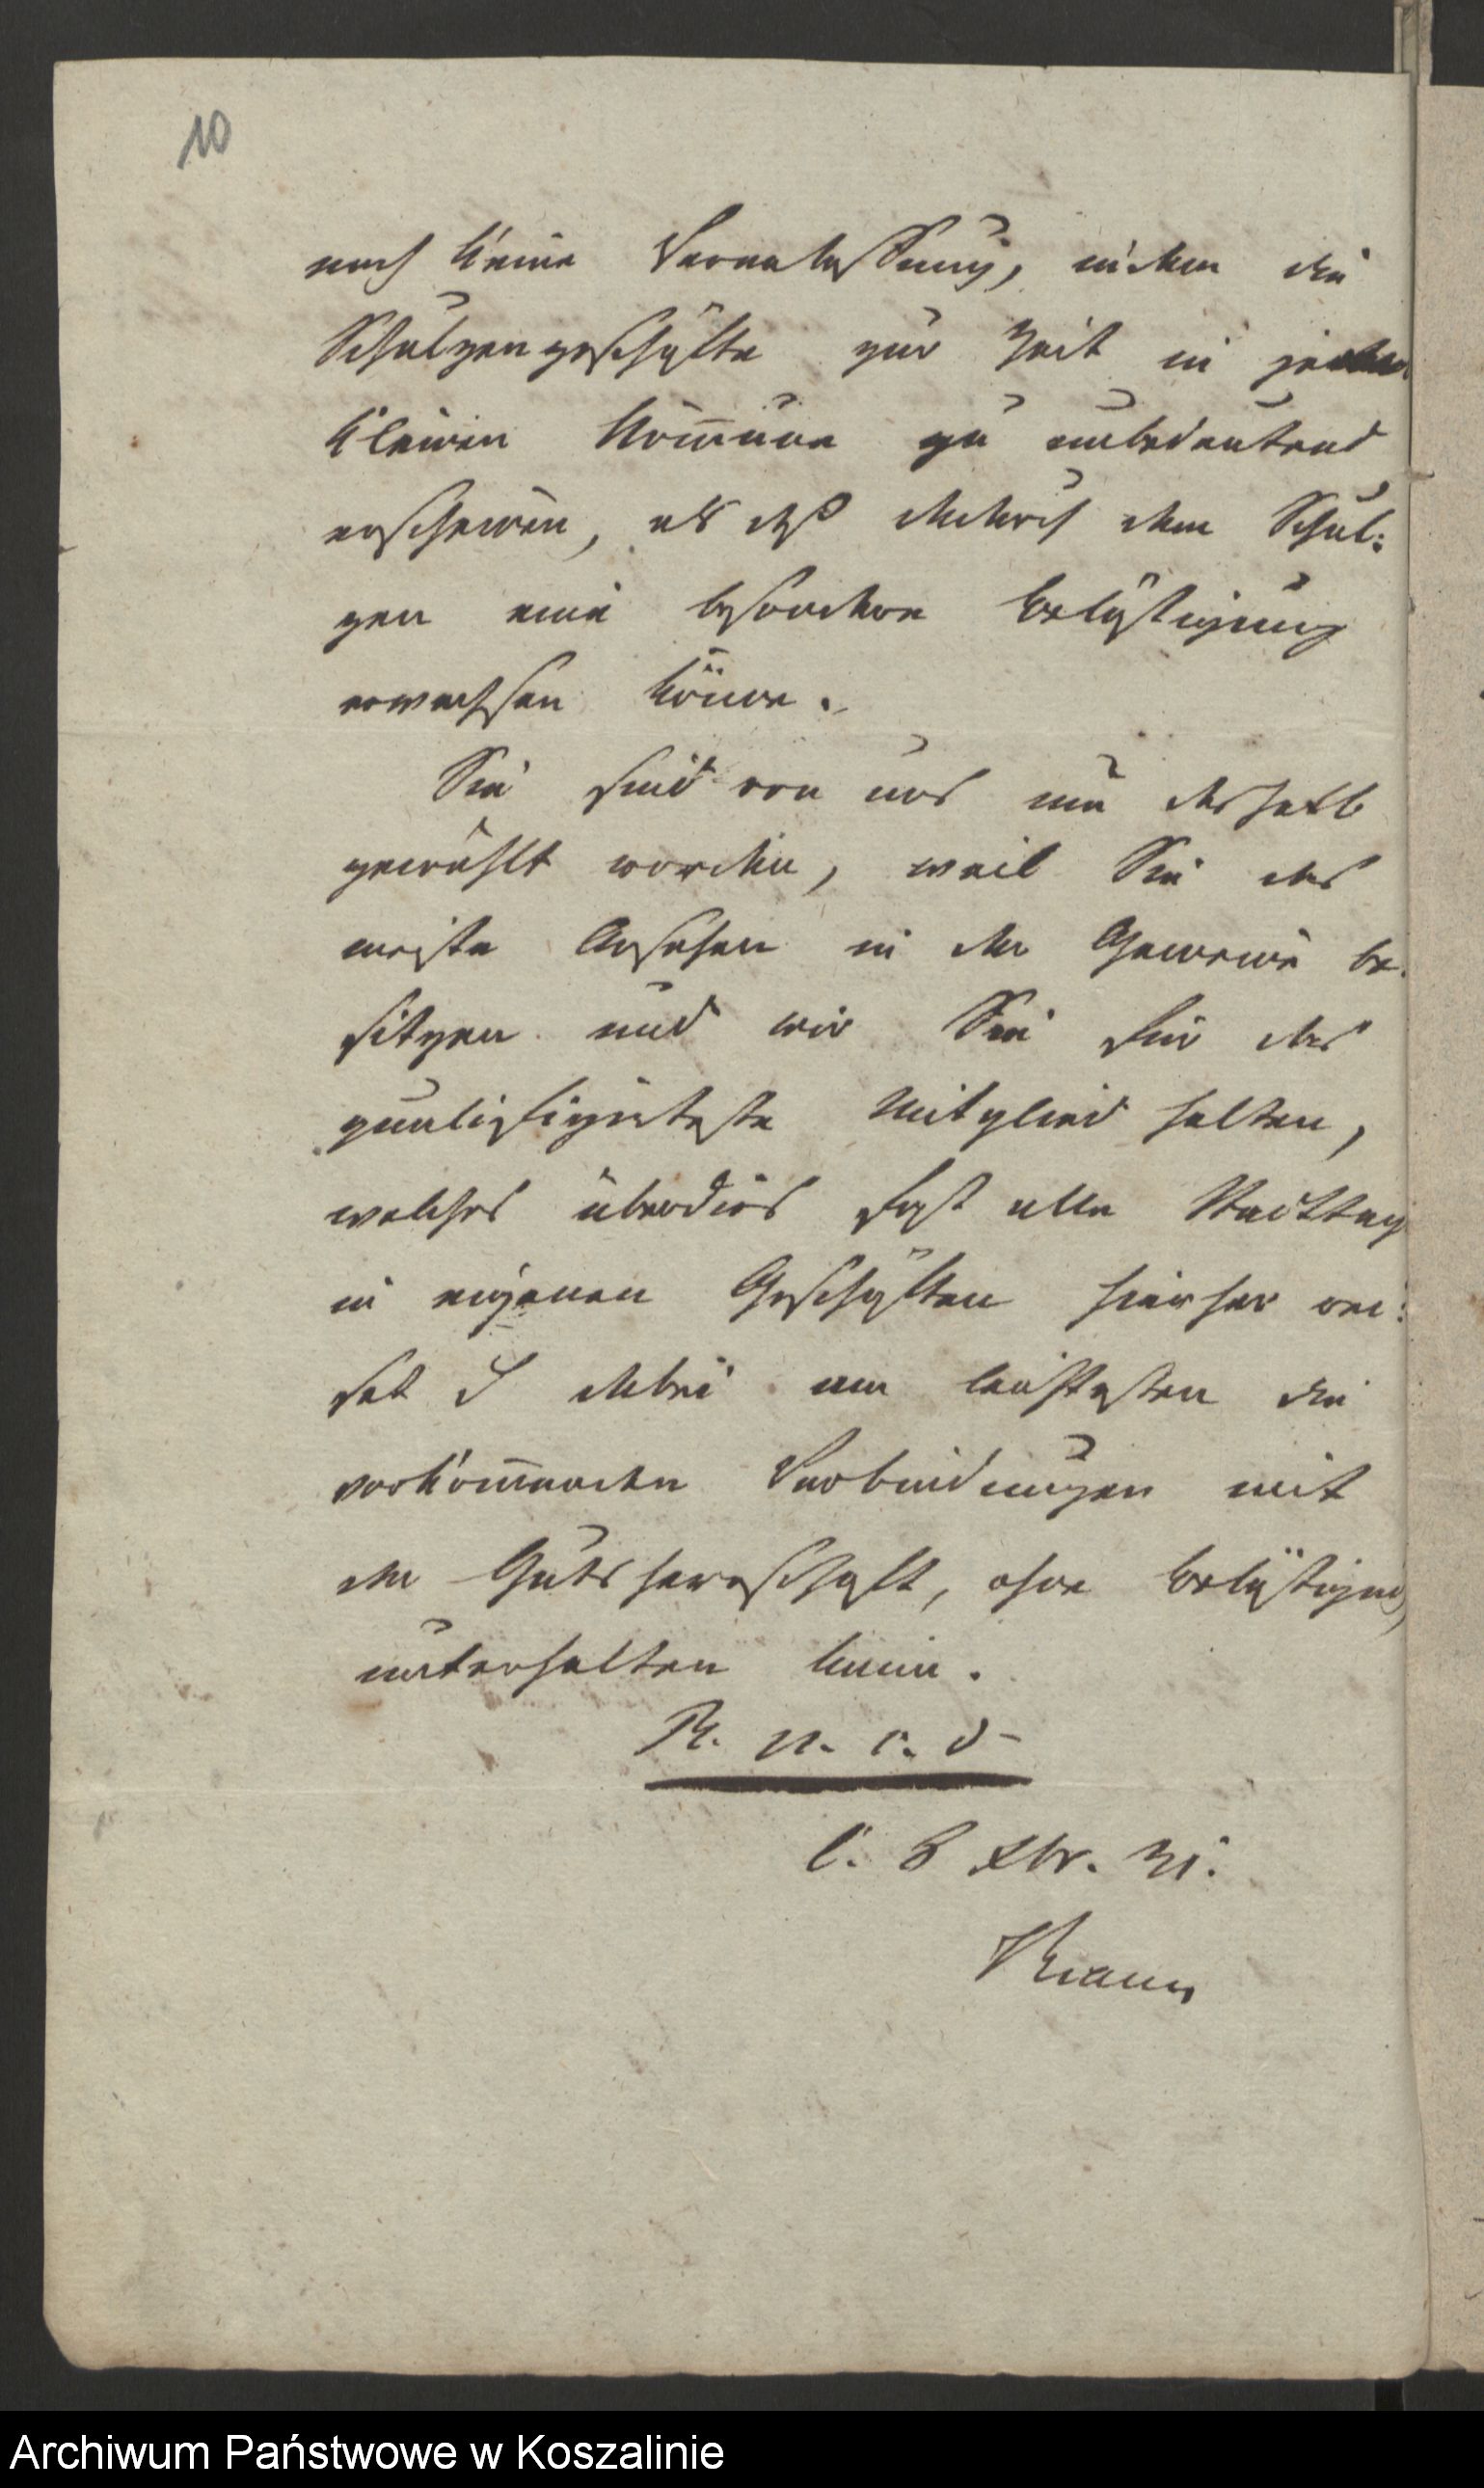 10
noch keine Veranlassung, indem die
Schulzengeschäfte zur Zeit in jener
kleinen Kom̄une zu unbedeutend
erscheinen, als daß dadurch dem Schul-
zen eine besondere Belästigung
erwachsen könne.
Sie sind von uns nur deshalb
gewählt worden, weil Sie das
meiste Ansehen in der Gemeine be-
sitzen und wir Sie für das
qualifizirteste Mitglied halten,
welches überdies fast alle Markttage
in eigenen Geschäften hierher rei-
set & dabei am leichtesten die
vorkom̄enden Verbindungen mit
der Gutsherrschaft, ohne Belästigung,
unterhalten kann.
R. n. c. d.
C. 8 Xbr. 31.
Archiwum Państwowe w Koszalinie